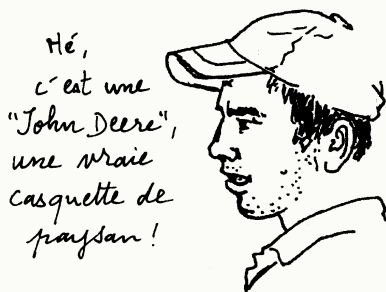 Mé,
c'est une
"John Deere",
une vraie
casquette de
paysan !